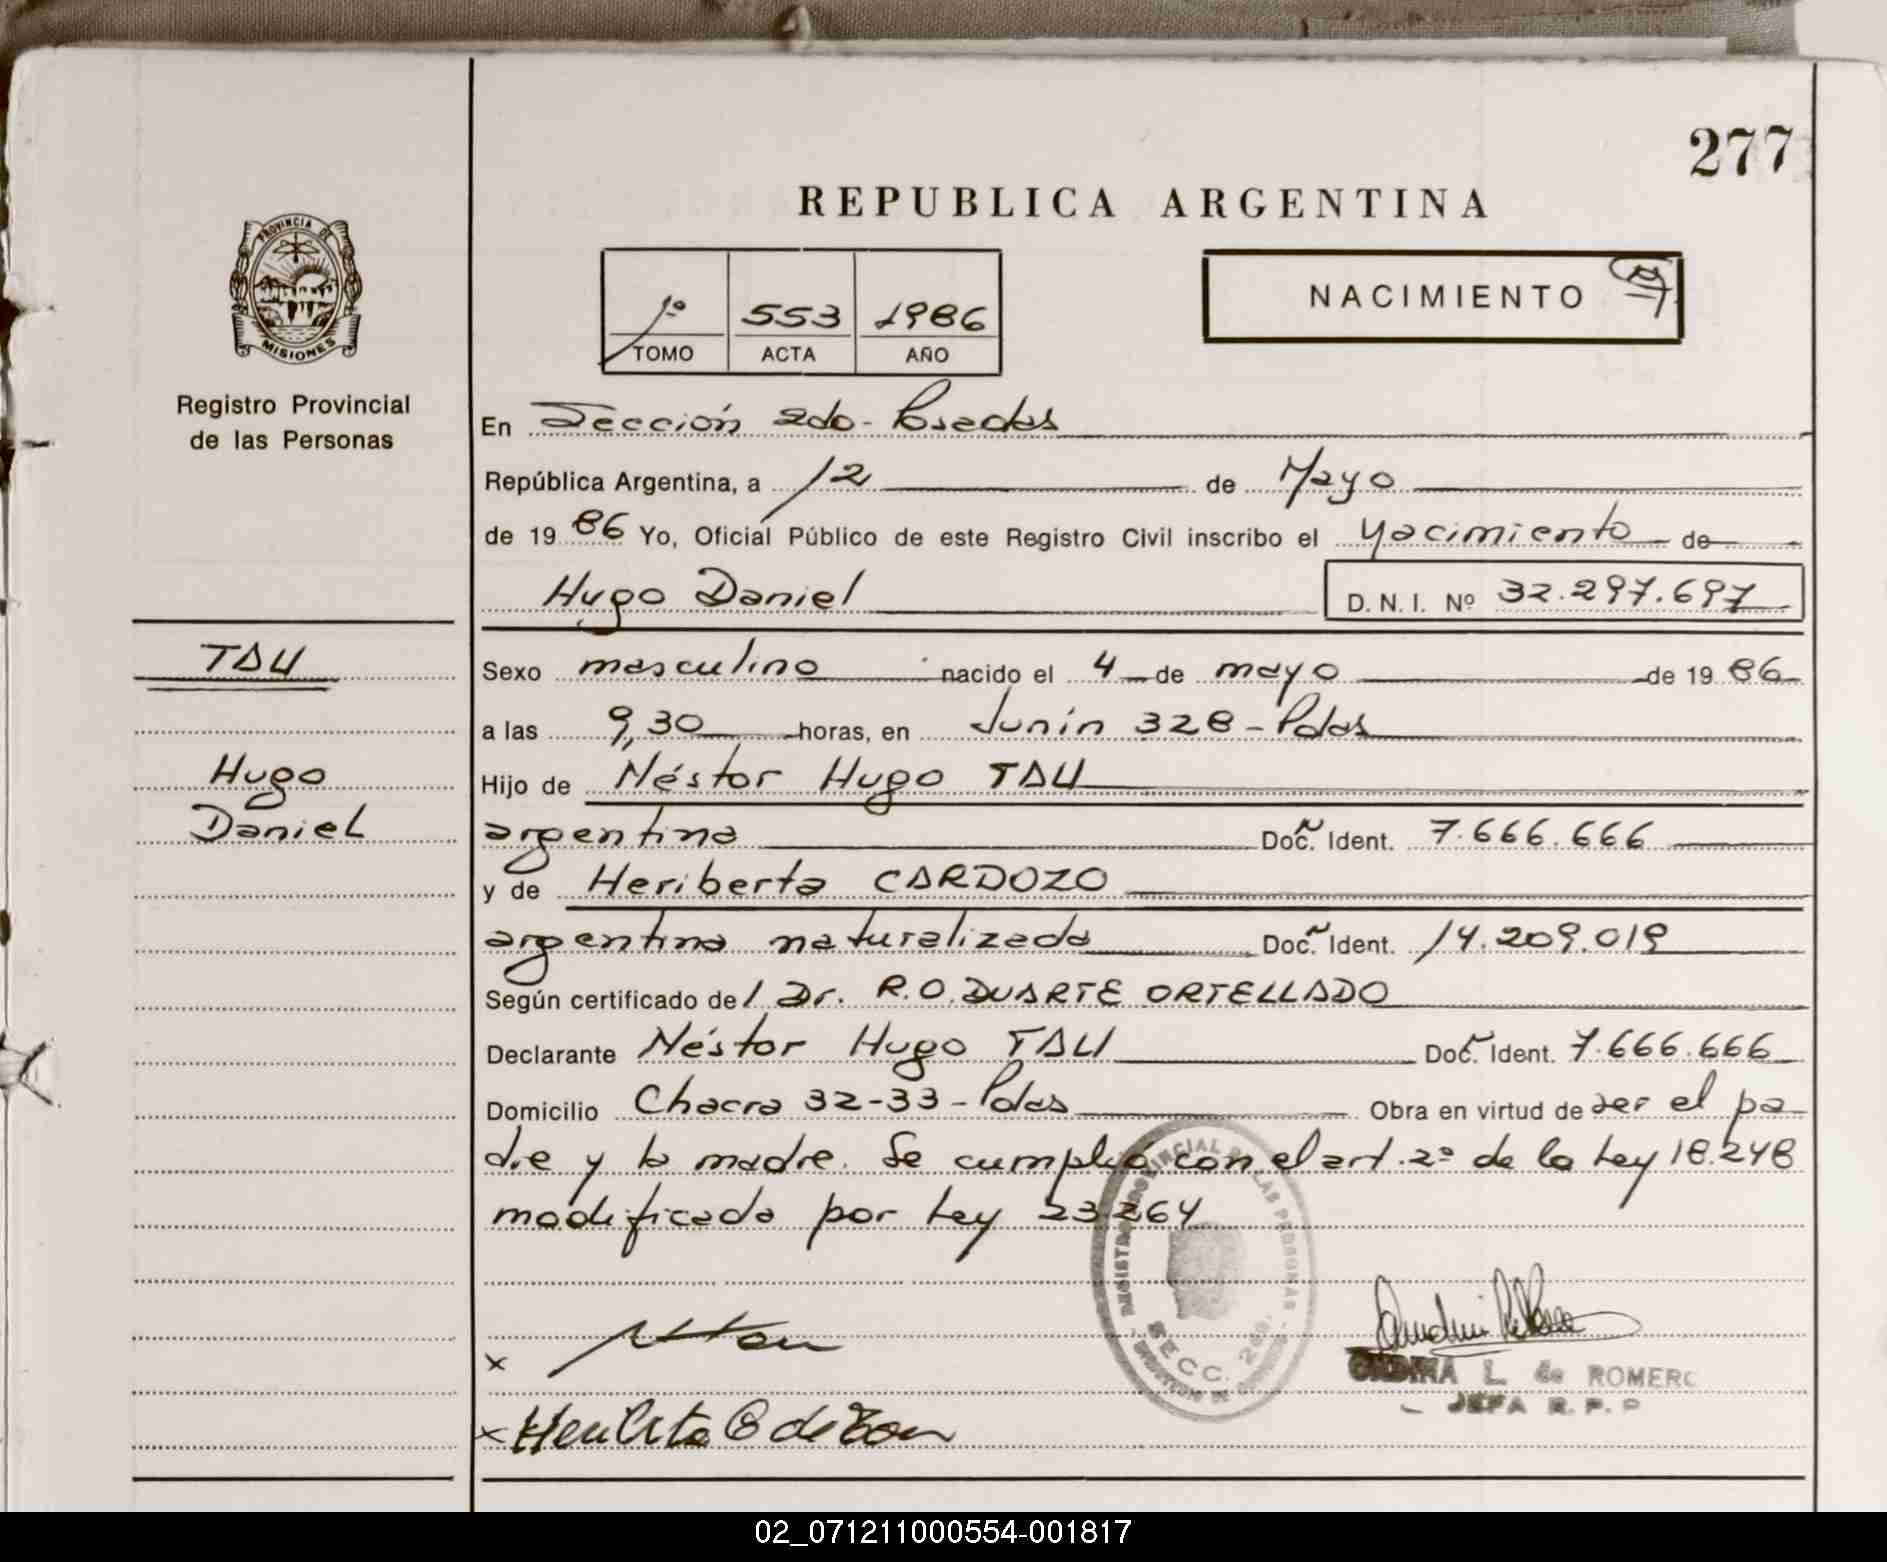 277
REPUBLICA ARGENTINA
PROVINCIA DE
MISIONES
Registro Provincial
de las Personas
1º 553 1986
TOMO ACTA AÑO
NACIMIENTO
En Sección 2do- Posadas
República Argentina, a 12 de Mayo
de 1986 Yo, Oficial Público de este Registro Civil inscribo el Nacimiento de
Hugo Daniel D. N. I. Nº 32.297.697
TAU
Hugo
Daniel
Sexo masculino nacido el 4 de mayo de 1986
a las 9,30 horas, en Junín 328 - Pdas
Hijo de Néstor Hugo TAU
argentina Doc. Ident. 7.666.666
y de Heriberta CARDOZO
argentina naturalizada Doc. Ident. 14.209.019
Según certificado de/ Dr. R.O. DUARTE ORTELLADO
Declarante Néstor Hugo TAU Doc. Ident. 7.666.666
Domicilio Chacra 32-33 - Pdas Obra en virtud de ser el pa-
dre y la madre. Se cumplió con el art. 2º de la Ley 18.248
modificada por Ley 23.264
REGISTRO PROVINCIAL DE LAS PERSONAS
SECC. 2da.
x
x Heriberta C de Tau
L. de ROMERO
JEFA R. P. P
02_071211000554-001817